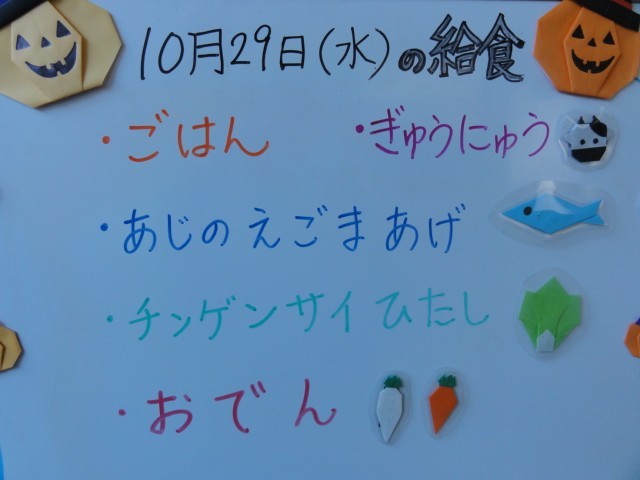 10月29日(水)の給食
・ごはん ・ぎゅうにゅう
・あじのえごまあげ
・チンゲンサイひたし
・おでん